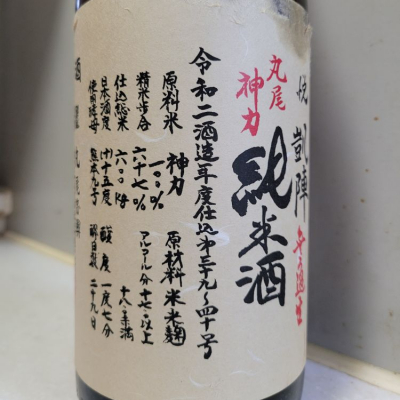 悦 凱陣 無ろ過生
丸尾
神力
純米酒
令和二酒造年度仕込第三十九～四十号
原料米 神力 一〇〇% 原材料 米 米麹
精米歩合 六十七% アルコール分 十七以上
十八未満
仕込総米 六〇〇kg
日本酒度 (+)十五度 酸度 一度七分
使用酵母 熊本九号 醪日数 二十九日
酒